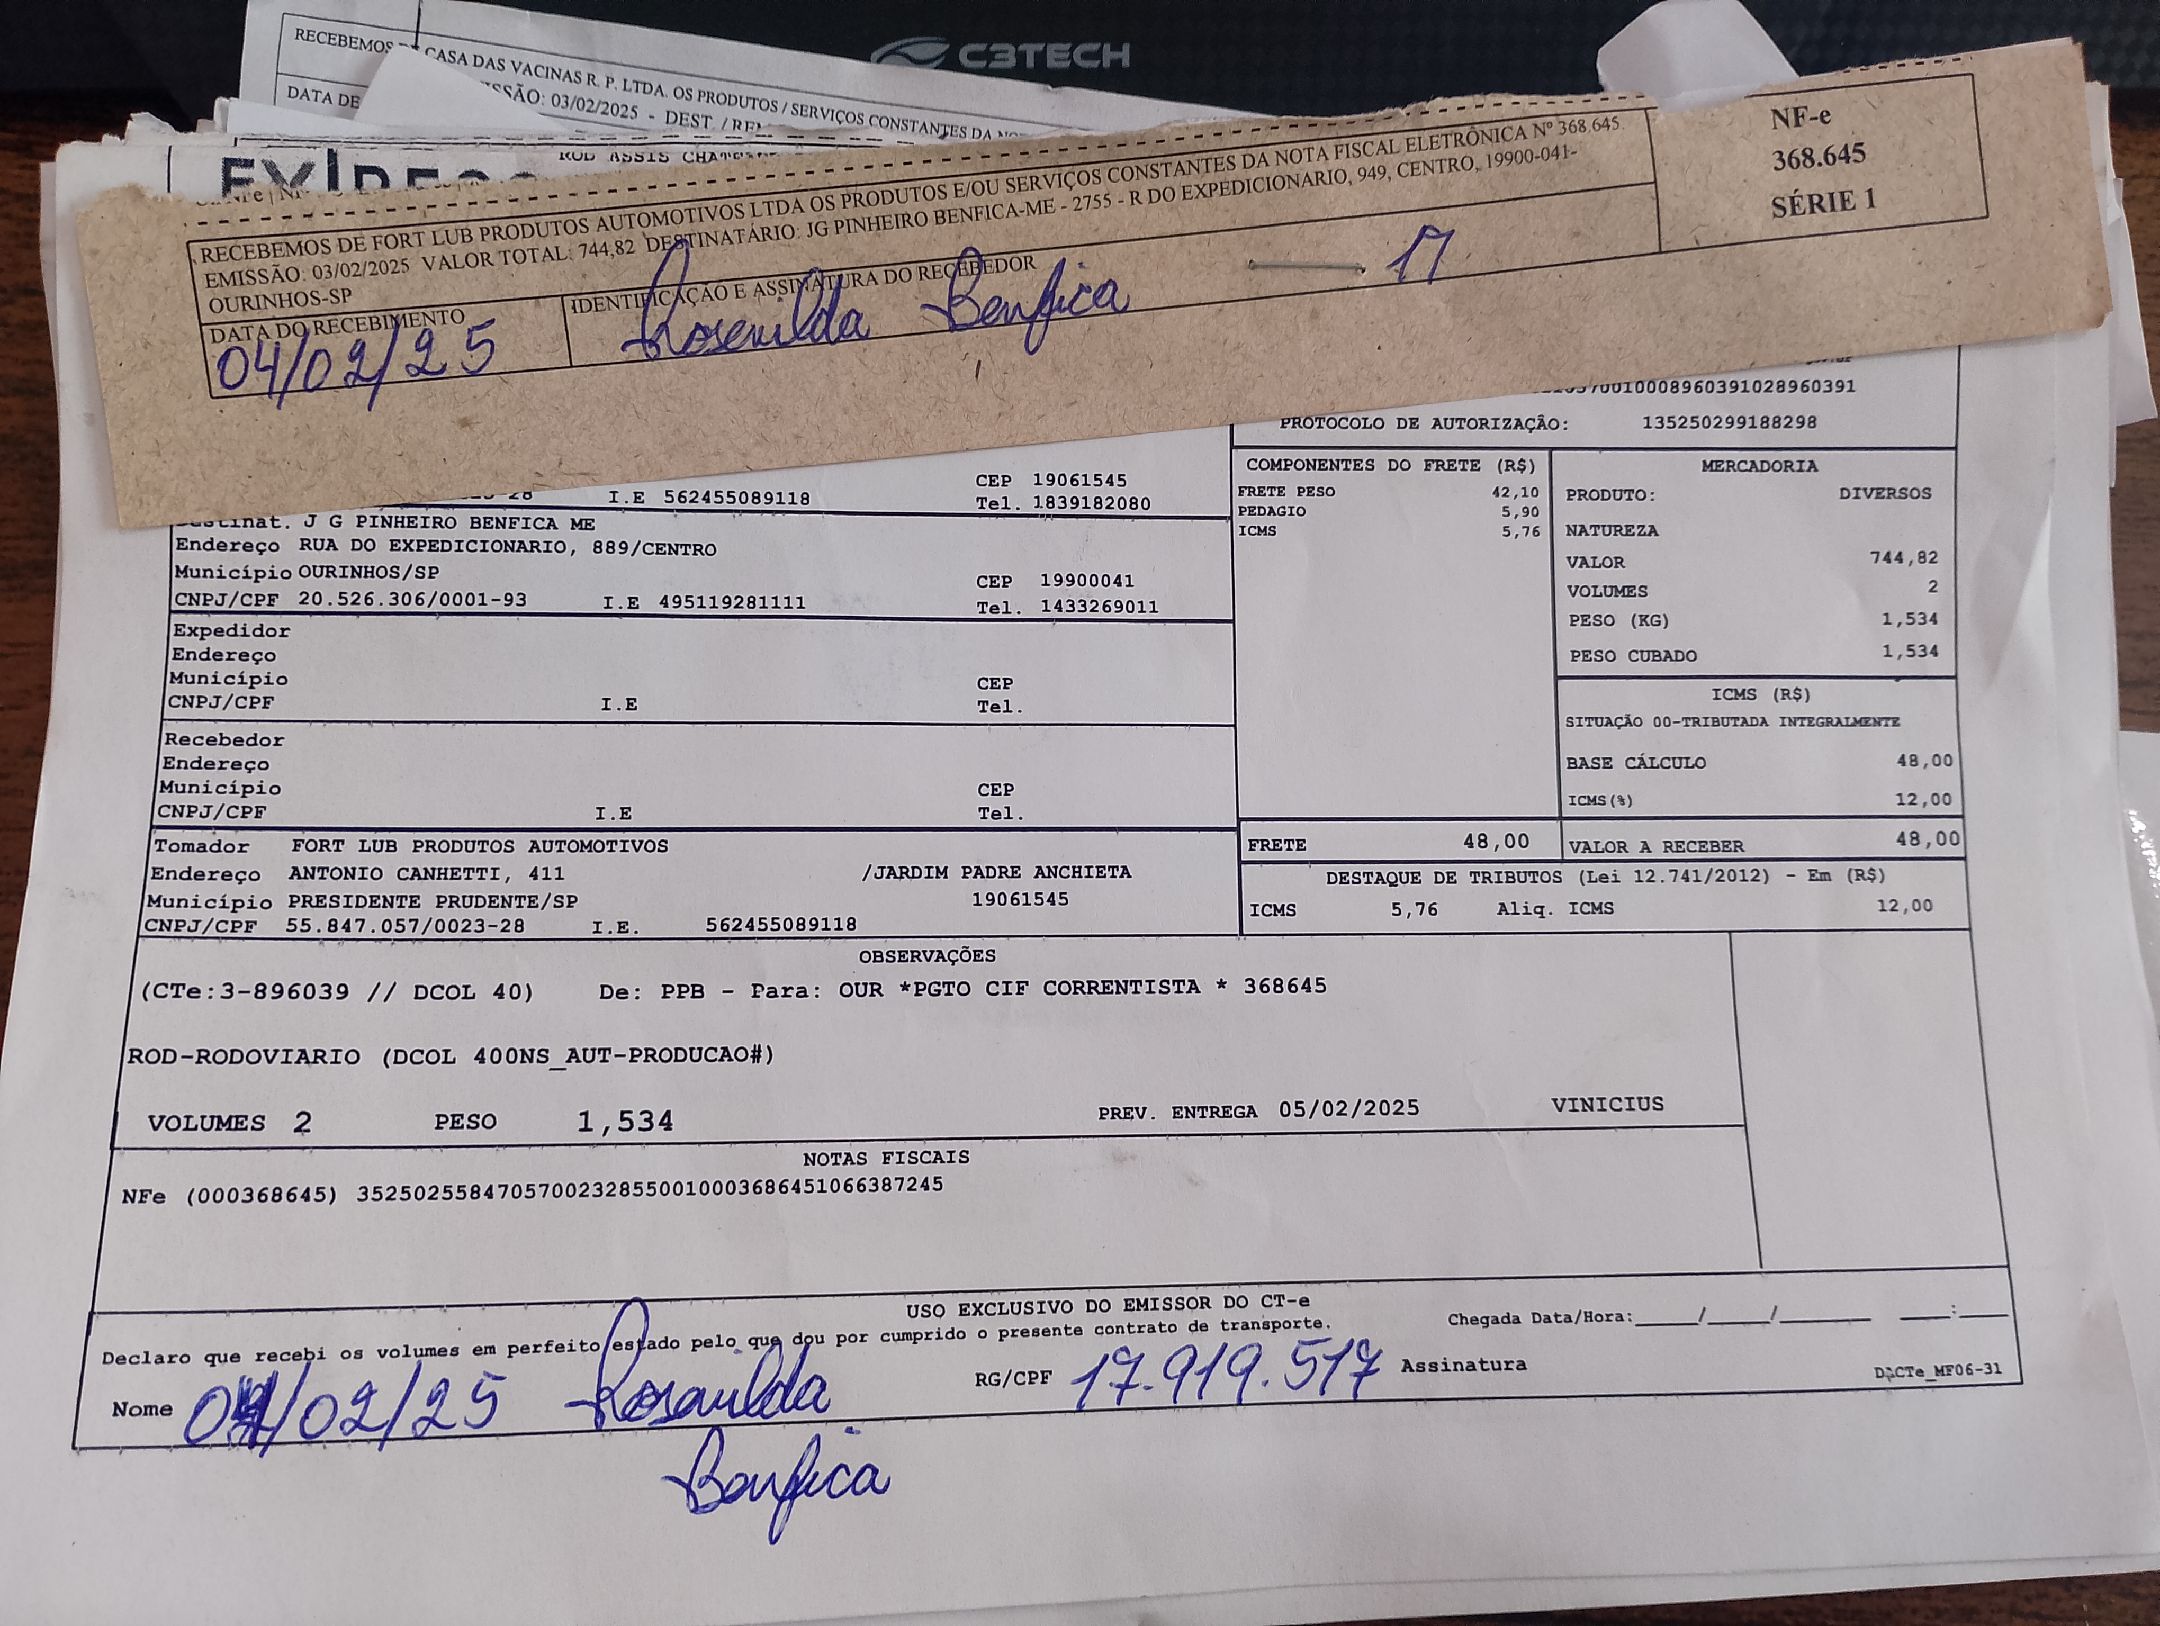 C3TECH
RECEBEMOS DE CASA DAS VACINAS R. P. LTDA. OS PRODUTOS / SERVIÇOS CONSTANTES DA
DATA DE SSÃO: 03/02/2025 - DEST. /
ROD ASSIS
RECEBEMOS DE FORT LUB PRODUTOS AUTOMOTIVOS LTDA OS PRODUTOS E/OU SERVIÇOS CONSTANTES DA NOTA FISCAL ELETRÔNICA Nº 368.645.
EMISSÃO: 03/02/2025 VALOR TOTAL: 744,82 DESTINATÁRIO: JG PINHEIRO BENFICA-ME - 2755 - R DO EXPEDICIONARIO, 949, CENTRO, 19900-041-
OURINHOS-SP
NF-e
368.645
SÉRIE 1
DATA DO RECEBIMENTO
04/02/25
IDENTIFICAÇÃO E ASSINATURA DO RECEBEDOR
Rosenilda Benfica 17
570010008960391028960391
PROTOCOLO DE AUTORIZAÇÃO: 135250299188298
CEP 19061545
28 I.E 562455089118 Tel. 1839182080
Destinat. J G PINHEIRO BENFICA ME
Endereço RUA DO EXPEDICIONARIO, 889/CENTRO
Município OURINHOS/SP CEP 19900041
CNPJ/CPF 20.526.306/0001-93 I.E 495119281111 Tel. 1433269011
Expedidor
Endereço
Município CEP
CNPJ/CPF I.E Tel.
Recebedor
Endereço
Município CEP
CNPJ/CPF I.E Tel.
Tomador FORT LUB PRODUTOS AUTOMOTIVOS
Endereço ANTONIO CANHETTI, 411 /JARDIM PADRE ANCHIETA
Município PRESIDENTE PRUDENTE/SP 19061545
CNPJ/CPF 55.847.057/0023-28 I.E. 562455089118
COMPONENTES DO FRETE (R$)
FRETE PESO 42,10
PEDAGIO 5,90
ICMS 5,76
MERCADORIA
PRODUTO: DIVERSOS
NATUREZA
VALOR 744,82
VOLUMES 2
PESO (KG) 1,534
PESO CUBADO 1,534
ICMS (R$)
SITUAÇÃO 00-TRIBUTADA INTEGRALMENTE
BASE CÁLCULO 48,00
ICMS(%) 12,00
FRETE 48,00 VALOR A RECEBER 48,00
DESTAQUE DE TRIBUTOS (Lei 12.741/2012) - Em (R$)
ICMS 5,76 Aliq. ICMS 12,00
OBSERVAÇÕES
(CTe:3-896039 // DCOL 40) De: PPB - Para: OUR *PGTO CIF CORRENTISTA * 368645
ROD-RODOVIARIO (DCOL 400NS_AUT-PRODUCAO#)
VOLUMES 2 PESO 1,534 PREV. ENTREGA 05/02/2025 VINICIUS
NOTAS FISCAIS
NFe (000368645) 35250255847057002328550010003686451066387245
USO EXCLUSIVO DO EMISSOR DO CT-e
Declaro que recebi os volumes em perfeito estado pelo que dou por cumprido o presente contrato de transporte. Chegada Data/Hora:____/____/______ ___:___
Nome 04/02/25 Rosenilda RG/CPF 17.919.517 Assinatura DACTe_MF06-31
Benfica